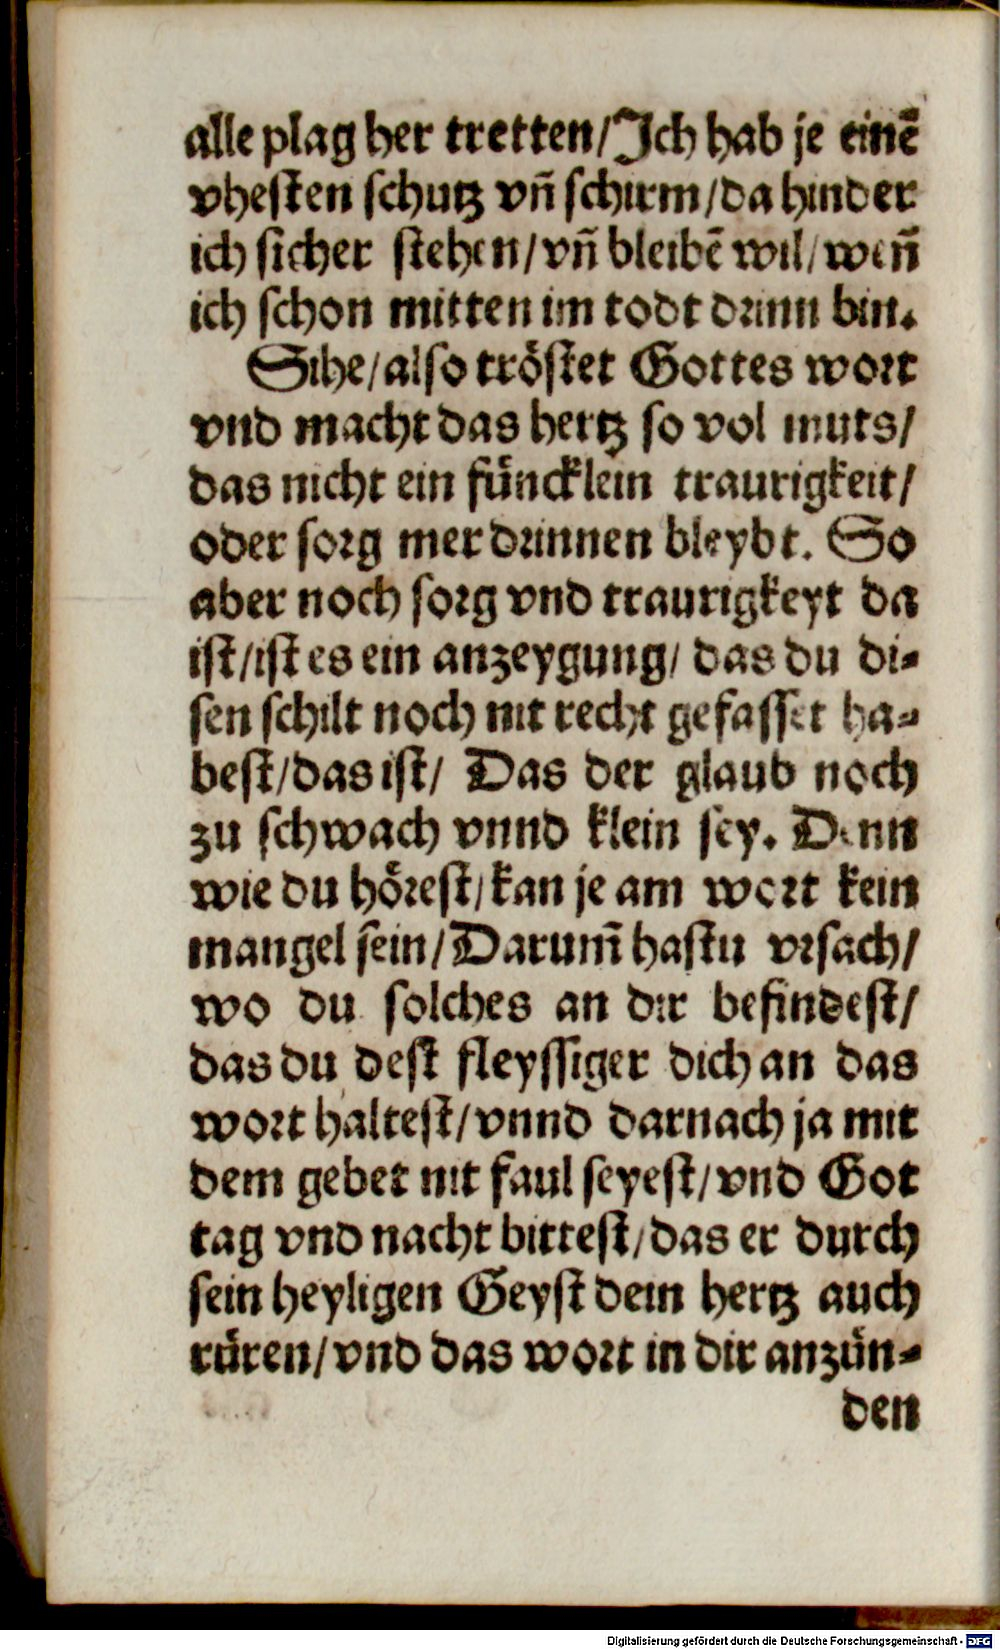 alle plag her tretten/Ich hab je einē
vhesten schutz vn̄ schirm/da hinder
ich sicher stehen/vn̄ bleibē wil/wen̄
ich schon mitten im todt drinn bin.
Sihe/also tröstet Gottes wort
vnd macht das hertz so vol muts/
das nicht ein füncklein traurigkeit/
oder sorg mer drinnen bleybt. So
aber noch sorg vnd traurigkeyt da
ist/ist es ein anzeygung/das du di-
sen schilt noch nit recht gefasset ha-
best/das ist/ Das der glaub noch
zu schwach vnnd klein sey. Denn
wie du hörest/kan je am wort kein
mangel sein/Darum̄ hastu vrsach/
wo du solches an dir befindest/
das du dest fleyssiger dich an das
wort haltest/vnnd darnach ja mit
dem gebet nit faul seyest/vnd Got
tag vnd nacht bittest/das er durch
sein heyligen Geyst dein hertz auch
rüren/vnd das wort in dir anzün-
den
Digitalisierung gefördert durch die Deutsche Forschungsgemeinschaft - DFG